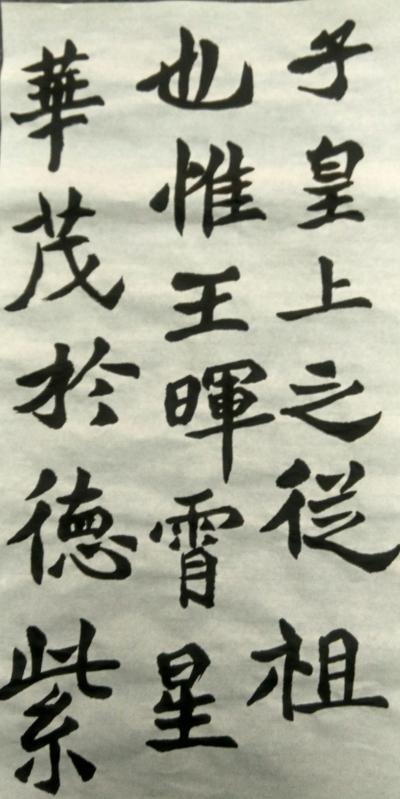 子皇上之從祖
也惟王暉霄星
華茂於德紫